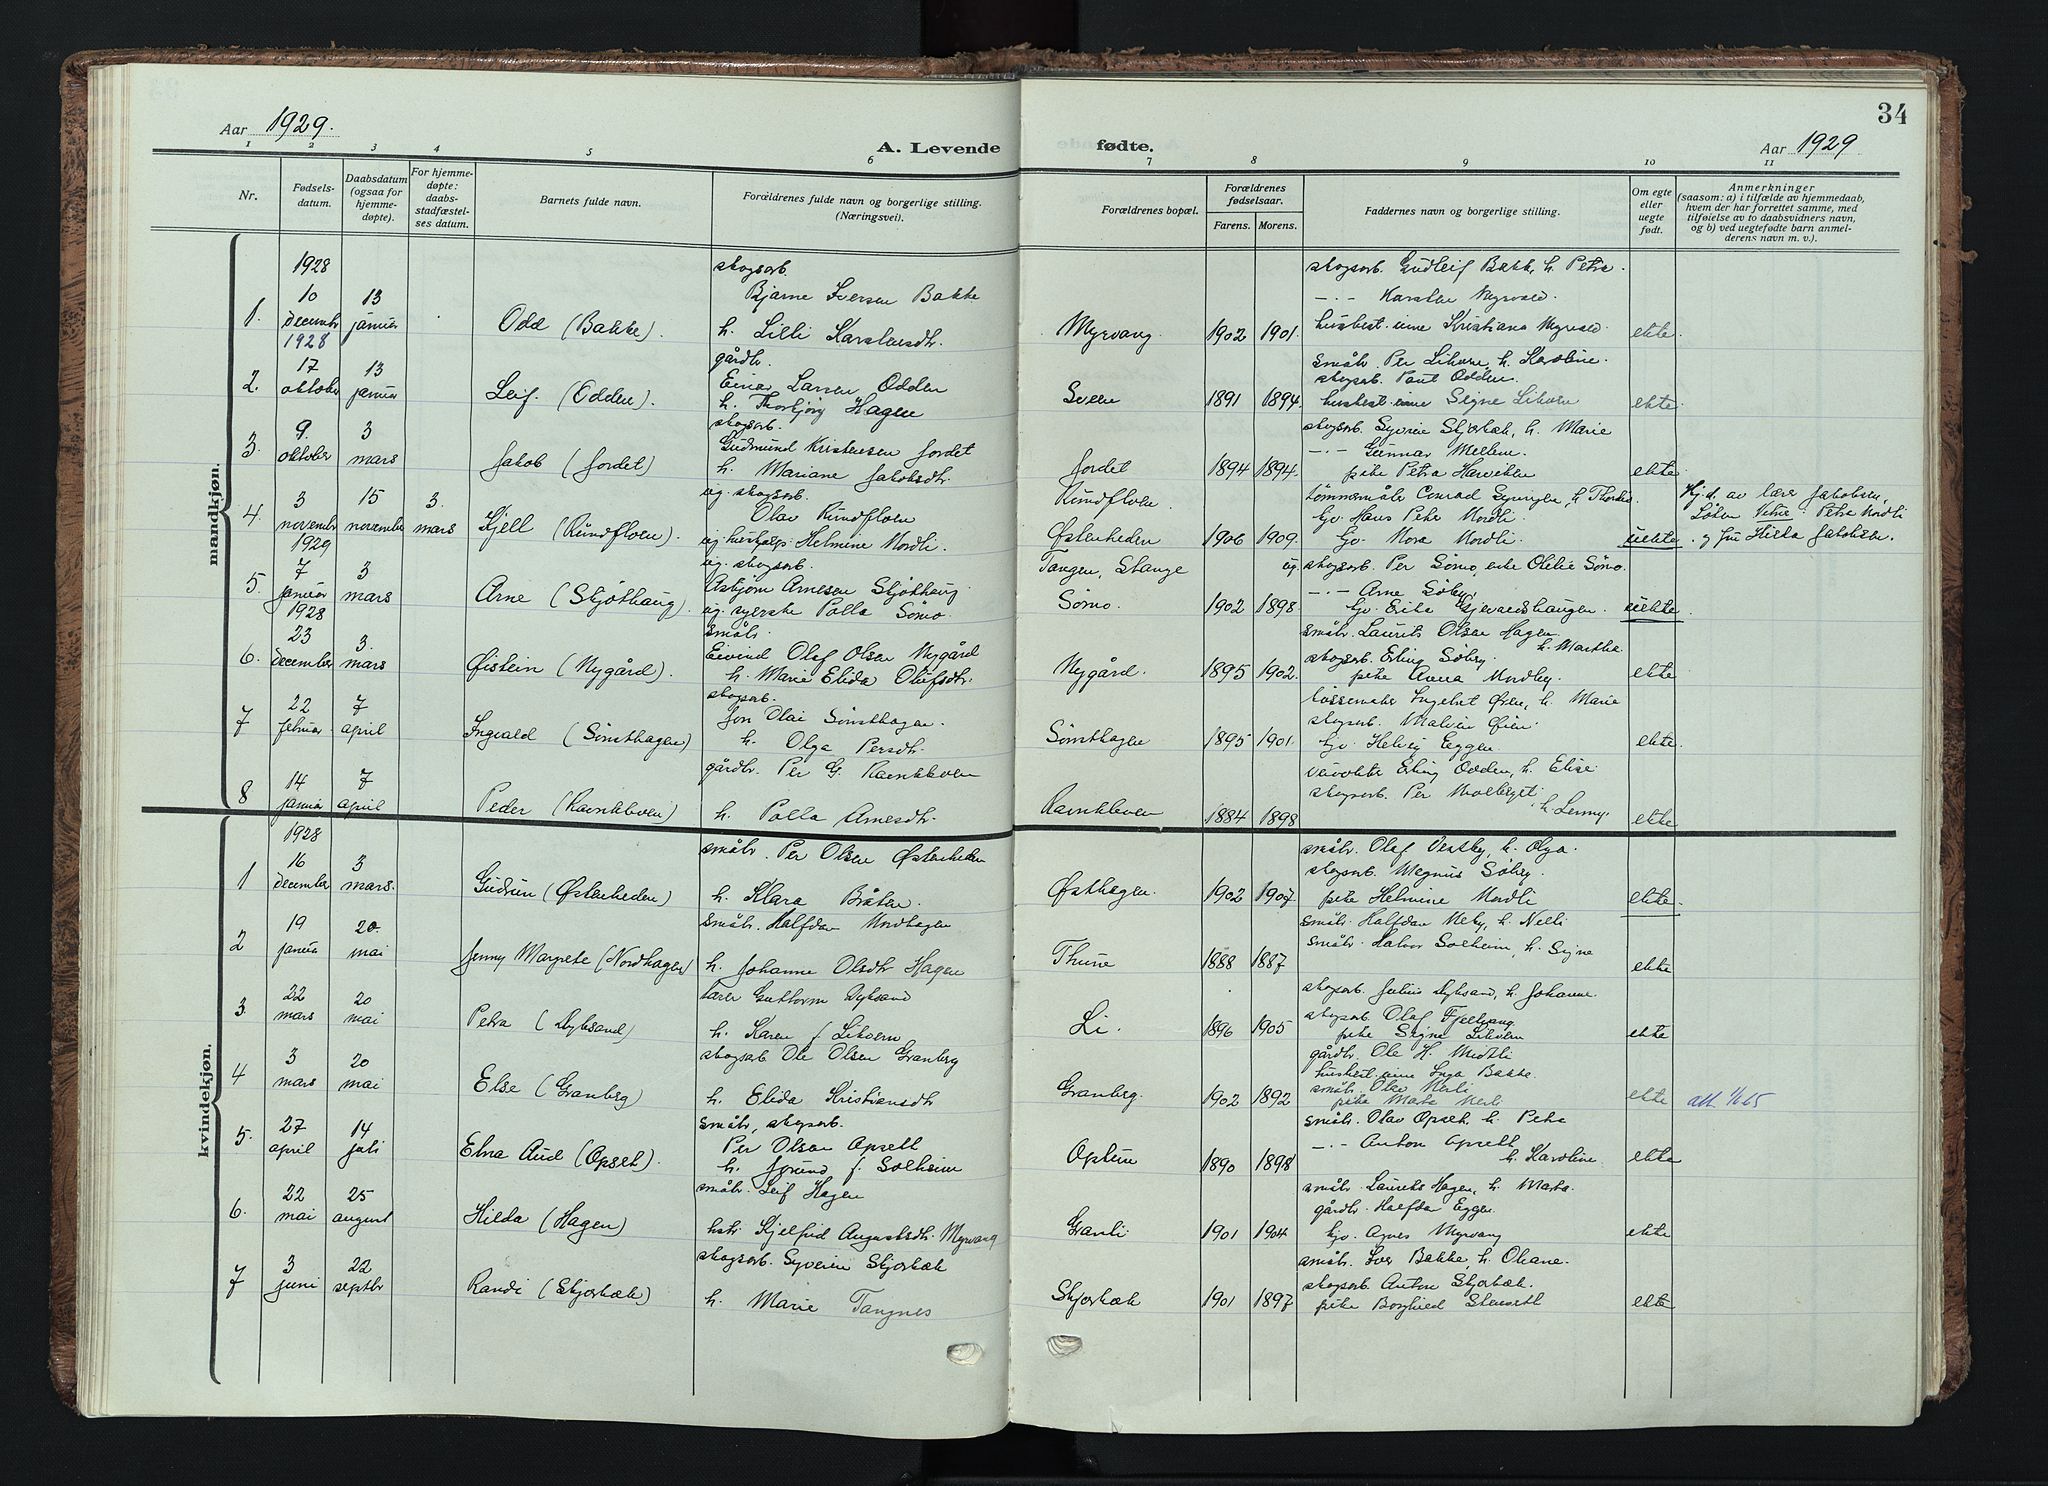 Aar 1929.
A. Levende
fødte.
34
Aar 1929
1 2 3 4 5 6 7 8 9 10 11
Nr.
Fødsels-
datum.
Daabsdatum
(ogsaa for
hjemme-
døpte).
For hjemme-
døpte:
daabs-
stadfæstel-
ses datum.
Barnets fulde navn.
Forældrenes fulde navn og borgerlige stilling.
(Næringsvei).
Forældrenes bopæl.
Forældrenes
fødselsaar.
Farens. Morens.
Faddernes navn og borgerlige stilling.
Om egte
eller
uegte
født.
Anmerkninger
(saasom: a) i tilfælde av hjemmedaab,
hvem der har forrettet samme, med
tilføielse av to daabsvidners navn,
og b) ved uegtefødte barn anmel-
derens navn m. v.).
mandkjøn.
1928
skogsarb.
skogsarb. Gudleif Bakk, h. Petra.
10 13
Bjarne Iversen Bakke
—·— Karsten Myrvold.
1. december januar Odd (Bakke). h. Lilli Karstensdtr. Myrvang 1902 1901. husbest.inne Kristiana Myrvold. ekte
1928
gårdbr.
småbr. Per Likvern, h. Karoline.
17 13
Einar Larsen Odden
skogsarb. Paul Odden.
2. oktober januar Leif (Odden). h. Thorbjørg Hagen Sveen 1891 1894. husbest.inne Signe Likvern ekte
skogsarb.
skogsarb. Syverin Skjærbæk, h. Marie
9. 3
Gudmund Kristensen Jordet
—·— Gunnar Mellem.
3. oktober mars Jakob (Jordet) h. Mariane Jakobsdtr. Jordet 1894 1894. pike Petra ekte
3 15 3. ug. skogsarb.
Olav Rundfloen Rundfloen
tømmermåler Conrad
Hj.d. av lærer Jakobsen,
4. november november mars Kjell (Rundfloen). ug. Helmine Nordli. Østenheden 1906 1909. Gv. Nora Nordli. uekte
Gv. Hans Peter Nordli.
Petra Nordli
og fru Hilda Jakobsen.
1929
ug. skogsarb.
Tangen, Stange
ug. skogsarb. Per Sømo, enke Olette Sømo.
7 3
Asbjørn Arnesen Skjøthaug
—·— Arne Søby.
5. januar mars Arne (Skjøthaug). ug. syerske Palla Sømo. Sømo. 1902 1898. uekte
1928
småbr.
småbr. Laurits Olsen Hagen.
h. Martha
23 3.
Eivind Olaf Olsen Nygård
skogsarb. Erling Søby.
6. december mars Øistein (Nygård). h. Marie Elida Olufsdtr. Nygård. 1895 1902. pike Anna Nordby. ekte
skogsarb.
22 7
Jon Olai Sønsthagen.
Ingebret Øien, h. Marie
skogsarb. Malvin Øien.
7 februar april Ingvald (Sønsthagen) h. Olga Persdtr. Sønsthagen 1895 1901. Gv. Helvig Eggen. ekte
gårdbr. Per G. Ravnkleven
veivokter Erling Odden, h. Elise.
14 7
skogsarb. Per Molberget
h. Jenny.
8 januar april Peder (Ravnkleven) h. Palla Arnesdtr. Ravnkleven 1884 1898 ekte
kvindekjøn.
1928
småbr. Per Olsen Østenheden
småbr. Olaf Vestby, h. Olga.
16 3
skogsarb. Magnus Søby.
1 december mars. Gudrun (Østenheden) h. Klara Bråten. Østhagen. 1902 1907 pike Helmine Nordli ekte.
19 20.
småbr. Halfdan Nordhagen
småbr. Halfdan Neby, h. Nelli
småbr. Halvor Solheim, h. Signe
2 januar mai Jenny Margrete (Nordhagen) h. Johanne Olsdtr Hagen Thune 1888 1887 ekte
22 20
lærer Guttorm Dyksand
skogsarb. Julius Dyksand, h. Johanne.
skogsarb. Olaf Fjellvang
3. mars mai Petra (Dyksand) h. Karen f. Likvern Li. 1896 1905 pike Signe Likvern ekte
3 20
skogsarb Ole Olsen Granberg
gårdbr. Ole H. Midtli
husbest.inne Inga Bakke.
småbr. Olav Nerli
4 mars mai Else (Granberg) h. Elida Kristiansdtr Granberg. 1902 1892 pike Marta Nerli ekte att. 1/6 65
27 14
småbr, skogsarb.
småbr. Olav Opseth, h. Petra
Per Olsen Opsett
—·— Anton Opseth
5. april juli Elna Aud (Opset). h. Jørund f. Solheim Optun 1890 1898 h. Karoline ekte
22 25
småbr. Leif Hagen
småbr. Laurits Hagen, h. Marta.
gårdbr. Halfdan Eggen.
6. mai august Hilda (Hagen) hstr. Kjelfrid Augustsdtr. Myrvang Granli 1901 1904 Gv. Agnes Myrvang ekte
skogsarb. Syverin Skjærbæk
småbr. Iver Bakke, h. Oleane.
3 22
skogsarb Anton Skjærbæk.
7 juni septbr Randi (Skjærbæk) h. Marie Tangnes Skjærbæk 1901 1897 pike Borghild ekte